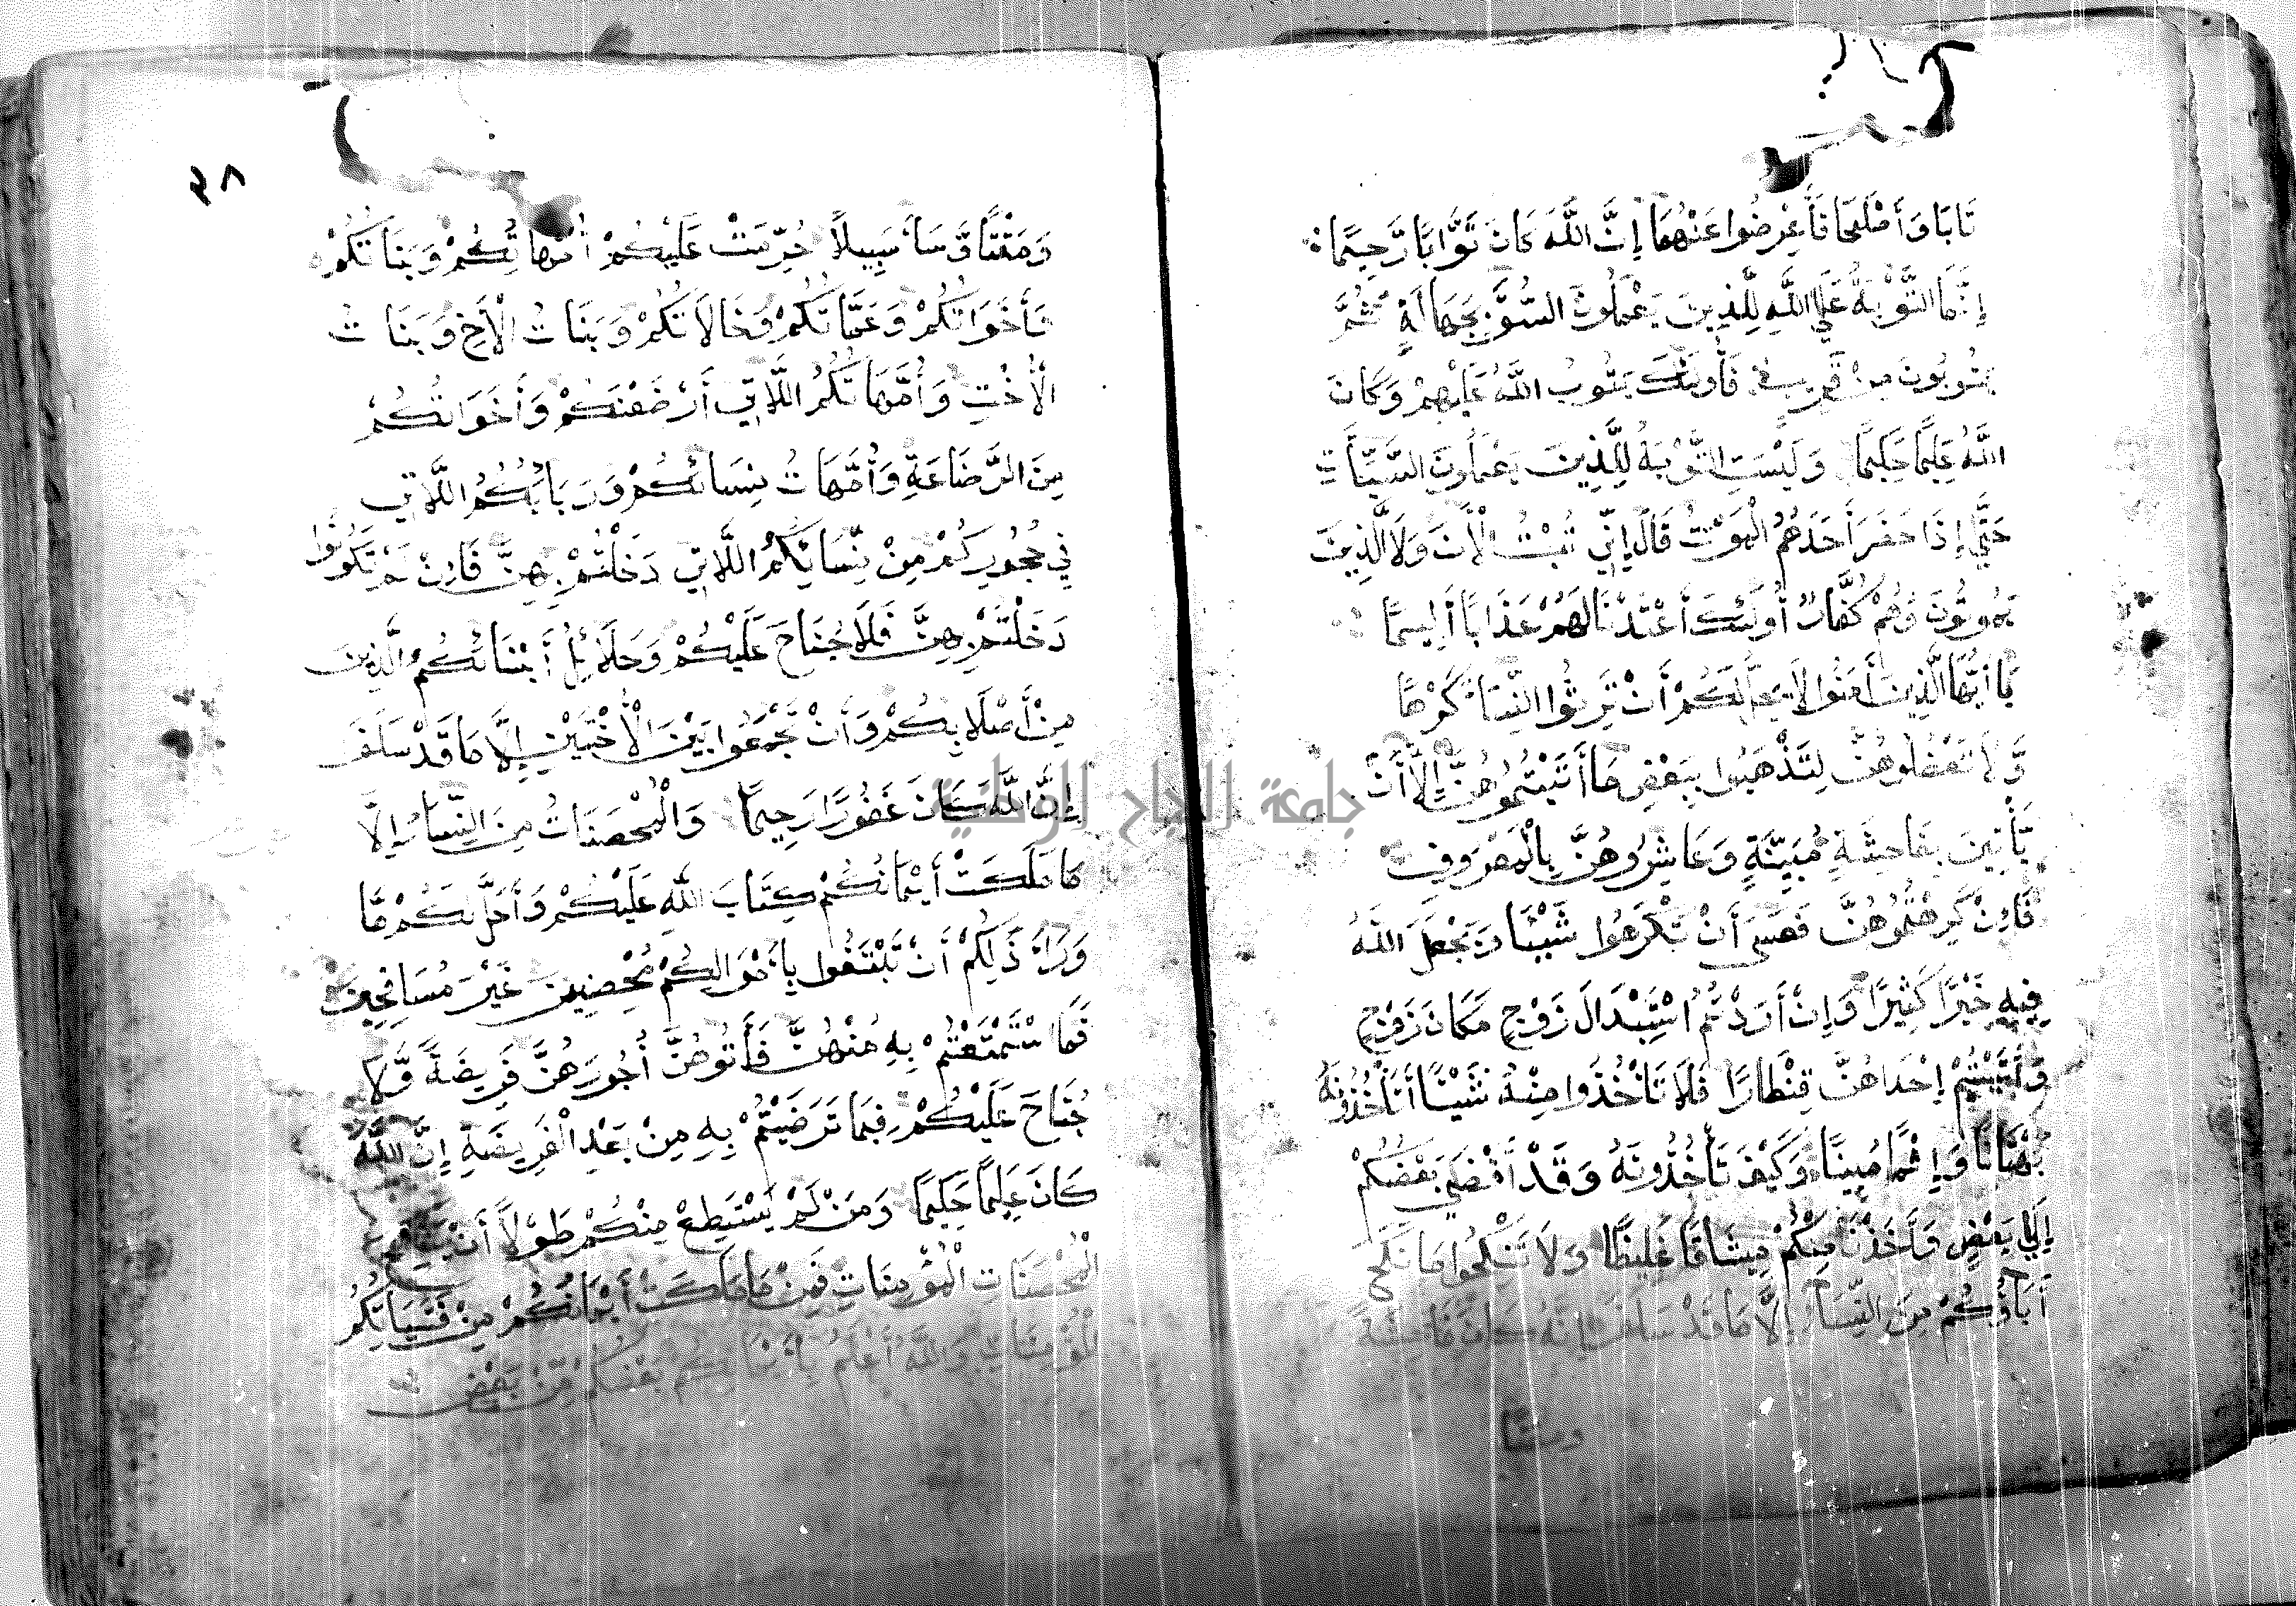 تَابَا وَأَصْلَحَا فَأَعْرِضُوا عَنْهُمَا إِنَّ اللَّهَ كَانَ تَوَّابًا رَّحِيمًا
إِنَّمَا التَّوْبَةُ عَلَى اللَّهِ لِلَّذِينَ يَعْمَلُونَ السُّوَّ بِجَهَالَةٍ ثُمَّ
يَتُوبُونَ مِنْ قَرِيبٍ فَأُولَئِكَ يَتُوبُ اللَّهُ عَلَيْهِمْ وَكَانَ
اللَّهُ عَلِيمًا حَكِيمًا وَلَيْسَتِ التَّوْبَةُ لِلَّذِينَ يَعْمَلُونَ السَّيِّأَتِ
حَتَّى إِذَا حَضَرَ أَحَدَهُمُ الْمَوْتُ قَالَ إِنِّي تُبْتُ الْأَنَ وَلَا الَّذِينَ
يَمُوتُونَ وَهُمْ كُفَّارٌ أُولَئِكَ أَعْتَدْنَا لَهُمْ عَذَابًا أَلِيمًا
يَا أَيُّهَا الَّذِينَ أَمَنُوا لَا يَحِلُّ لَكُمْ أَنْ تَرِثُوا النِّسَا كَرْهًا
وَّلَا تَعْضُلُوهُنَّ لِتَذْهَبُوا بِبَعْضِ مَا أَتَيْتُمُوهُنَّ إِلَّا أَنْ
يَّأْتِينَ بِفَاحِشَةٍ مُّبَيِّنَةٍ وَعَاشِرُوهُنَّ بِالْمَعْرُوفِ
فَإِنْ كَرِهْتُمُوهُنَّ فَعَسَى أَنْ تَكْرَهُوا شَيْئًا وَّيَجْعَلَ اللَّهُ
فِيهِ خَيْرًا كَثِيرًا وَإِنْ أَرَدْتُّمُ اسْتِبْدَالَ زَوْجٍ مَكَانَ زَوْجٍ
وَّأَتَيْتُمْ إِحْدَاهُنَّ قِنْطَارًا فَلَا تَأْخُذُوا مِنْهُ شَيْئًا أَتَأْخُذُونَهُ
بُهْتَانًا وَإِثْمًا مُّبِينًا وَكَيْفَ تَأْخُذُونَهُ وَقَدْ أَفْضَى بَعْضُكُمْ
إِلَى بَعْضٍ وَّأَخَذْنَ مِنْكُمْ مِيثَاقًا غَلِيظًا وَلَا تَنْكِحُوا مَا نَكَحَ
أَبَاؤُكُمْ مِنَ النِّسَا إِلَّا مَا قَدْ سَلَفَ إِنَّهُ كَانَ فَاحِشَةً
ومقتا
٣٨
وَمَقْتًا وَّسَا سَبِيلًا حُرِّمَتْ عَلَيْكُمْ أُمَّهَاتُكُمْ وَبَنَاتُكُمْ
وَأَخَوَاتُكُمْ وَعَمَّاتُكُمْ وَخَالَاتُكُمْ وَبَنَاتُ الْأَخِ وَبَنَاتُ
الْأُخْتِ وَأُمَّهَاتُكُمُ اللَّاتِي أَرْضَعْنَكُمْ وَأَخَوَاتُكُمْ
مِنَ الرَّضَاعَةِ وَأُمَّهَاتُ نِسَائِكُمْ وَرَبَائِبُكُمُ اللَّاتِي
فِي حُجُورِكُمْ مِنْ نِّسَائِكُمُ اللَّاتِي دَخَلْتُمْ بِهِنَّ فَإِنْ لَمْ تَكُونُوا
دَخَلْتُمْ بِهِنَّ فَلَا جُنَاحَ عَلَيْكُمْ وَحَلَائِلُ أَبْنَائِكُمُ الَّذِينَ
مِنْ أَصْلَابِكُمْ وَأَنْ تَجْمَعُوا بَيْنَ الْأُخْتَيْنِ إِلَّا مَا قَدْ سَلَفَ
إِنَّ اللَّهَ كَانَ غَفُورًا رَحِيمًا وَالْمُحْصَنَاتُ مِنَ النِّسَا إِلَّا
مَا مَلَكَتْ أَيْمَانُكُمْ كِتَابَ اللَّهِ عَلَيْكُمْ وَأُحِلَّ لَكُمْ مَّا
وَرَا ذَلِكُمْ أَنْ تَبْتَغُوا بِأَمْوَالِكُمْ مُحْصِنِينَ غَيْرَ مُسَافِحِينَ
فَمَا اسْتَمْتَعْتُمْ بِهِ مِنْهُنَّ فَأَتُوهُنَّ أُجُورَهُنَّ فَرِيضَةً وَّلَا
جُنَاحَ عَلَيْكُمْ فِيمَا تَرَضَيْتُمْ بِهِ مِنْ بَعْدِ الْفَرِيضَةِ إِنَّ اللَّهَ
كَانَ عَلِيمًا حَكِيمًا وَمَنْ لَّمْ يَسْتَطِعْ مِنْكُمْ طَوْلًا أَنْ يَنْكِحَ
الْمُحْصَنَاتِ الْمُؤْمِنَاتِ فَمِنْ مَا مَلَكَتْ أَيْمَانُكُمْ مِنْ فَتَيَاتِكُمُ
الْمُؤْمِنَاتِ وَاللَّهُ أَعْلَمُ بِأِيْمَانِكُمْ بَعْضُكُمْ مِّنْ بَعْضٍ
جامعة النجاح الوطنية